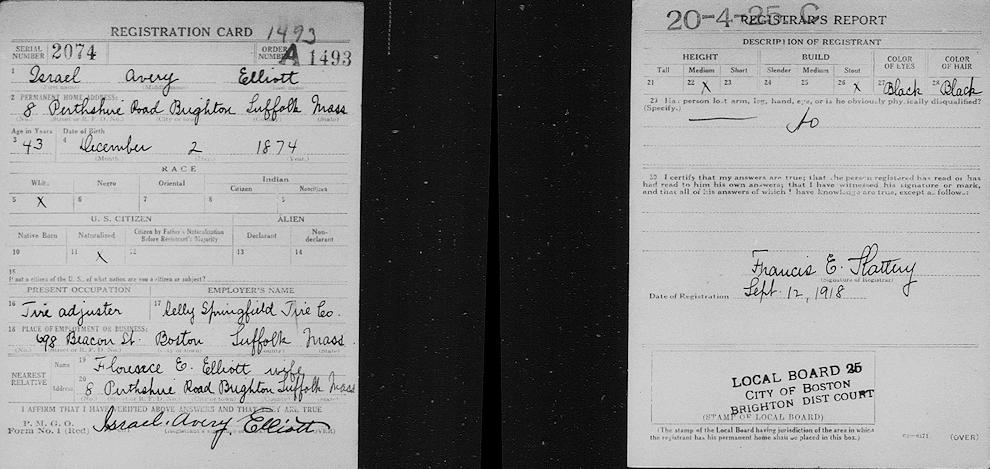 REGISTRATION CARD 1493
SERIAL NUMBER 2074 ORDER NUMBER A 1493
1 Israel Avery Elliott
(First name) (Middle name) (Last name)
2 PERMANENT HOME ADDRESS:
8 Perthshire Road Brighton Suffolk Mass
(No.) (Street or R. F. D. No.) (City or town) (County) (State)
Age in Years Date of Birth
3 43 4 December 2 1874
(Month.) (Day.) (Year.)
RACE
White Negro Oriental Indian
Citizen Noncitizen
5 X 6 7 8 9
U. S. CITIZEN ALIEN
Native Born Naturalized Citizen by Father's Naturalization Before Registrant's Majority Declarant Non-declarant
10 11 X 12 13 14
15
If not a citizen of the U. S., of what nation are you a citizen or subject?
PRESENT OCCUPATION EMPLOYER'S NAME
16 Tire adjuster 17 Kelly Springfield Tire Co.
18 PLACE OF EMPLOYMENT OR BUSINESS:
698 Beacon St. Boston Suffolk Mass.
(No.) (Street or R. F. D. No.) (City or town) (County) (State)
NEAREST RELATIVE Name 19 Florence E. Elliott wife
Address 20 8 Perthshire Road Brighton Suffolk Mass
(No.) (Street or R. F. D. No.) (City or town) (County) (State)
I AFFIRM THAT I HAVE VERIFIED ABOVE ANSWERS AND THAT THEY ARE TRUE
P. M. G. O.
Form No. 1 (Red) Israel Avery Elliott (OVER)
20-4-25 C
REGISTRAR'S REPORT
DESCRIPTION OF REGISTRANT
HEIGHT BUILD COLOR OF EYES COLOR OF HAIR
Tall Medium Short Slender Medium Stout
21 22 X 23 24 25 26 X 27 Black 28 Black
29 Has person lost arm, leg, hand, eye, or is he obviously physically disqualified?
(Specify.) No
30 I certify that my answers are true; that the person registered has read or has
had read to him his own answers; that I have witnessed his signature or mark,
and that all of his answers of which I have knowledge are true, except as follows:
Francis E. Slattery
(Signature of Registrar)
Date of Registration Sept. 12, 1918
LOCAL BOARD 25
CITY OF BOSTON
BRIGHTON DIST COURT
(STAMP OF LOCAL BOARD)
(The stamp of the Local Board having jurisdiction of the area in which
the registrant has his permanent home shall be placed in this box.)
(OVER)